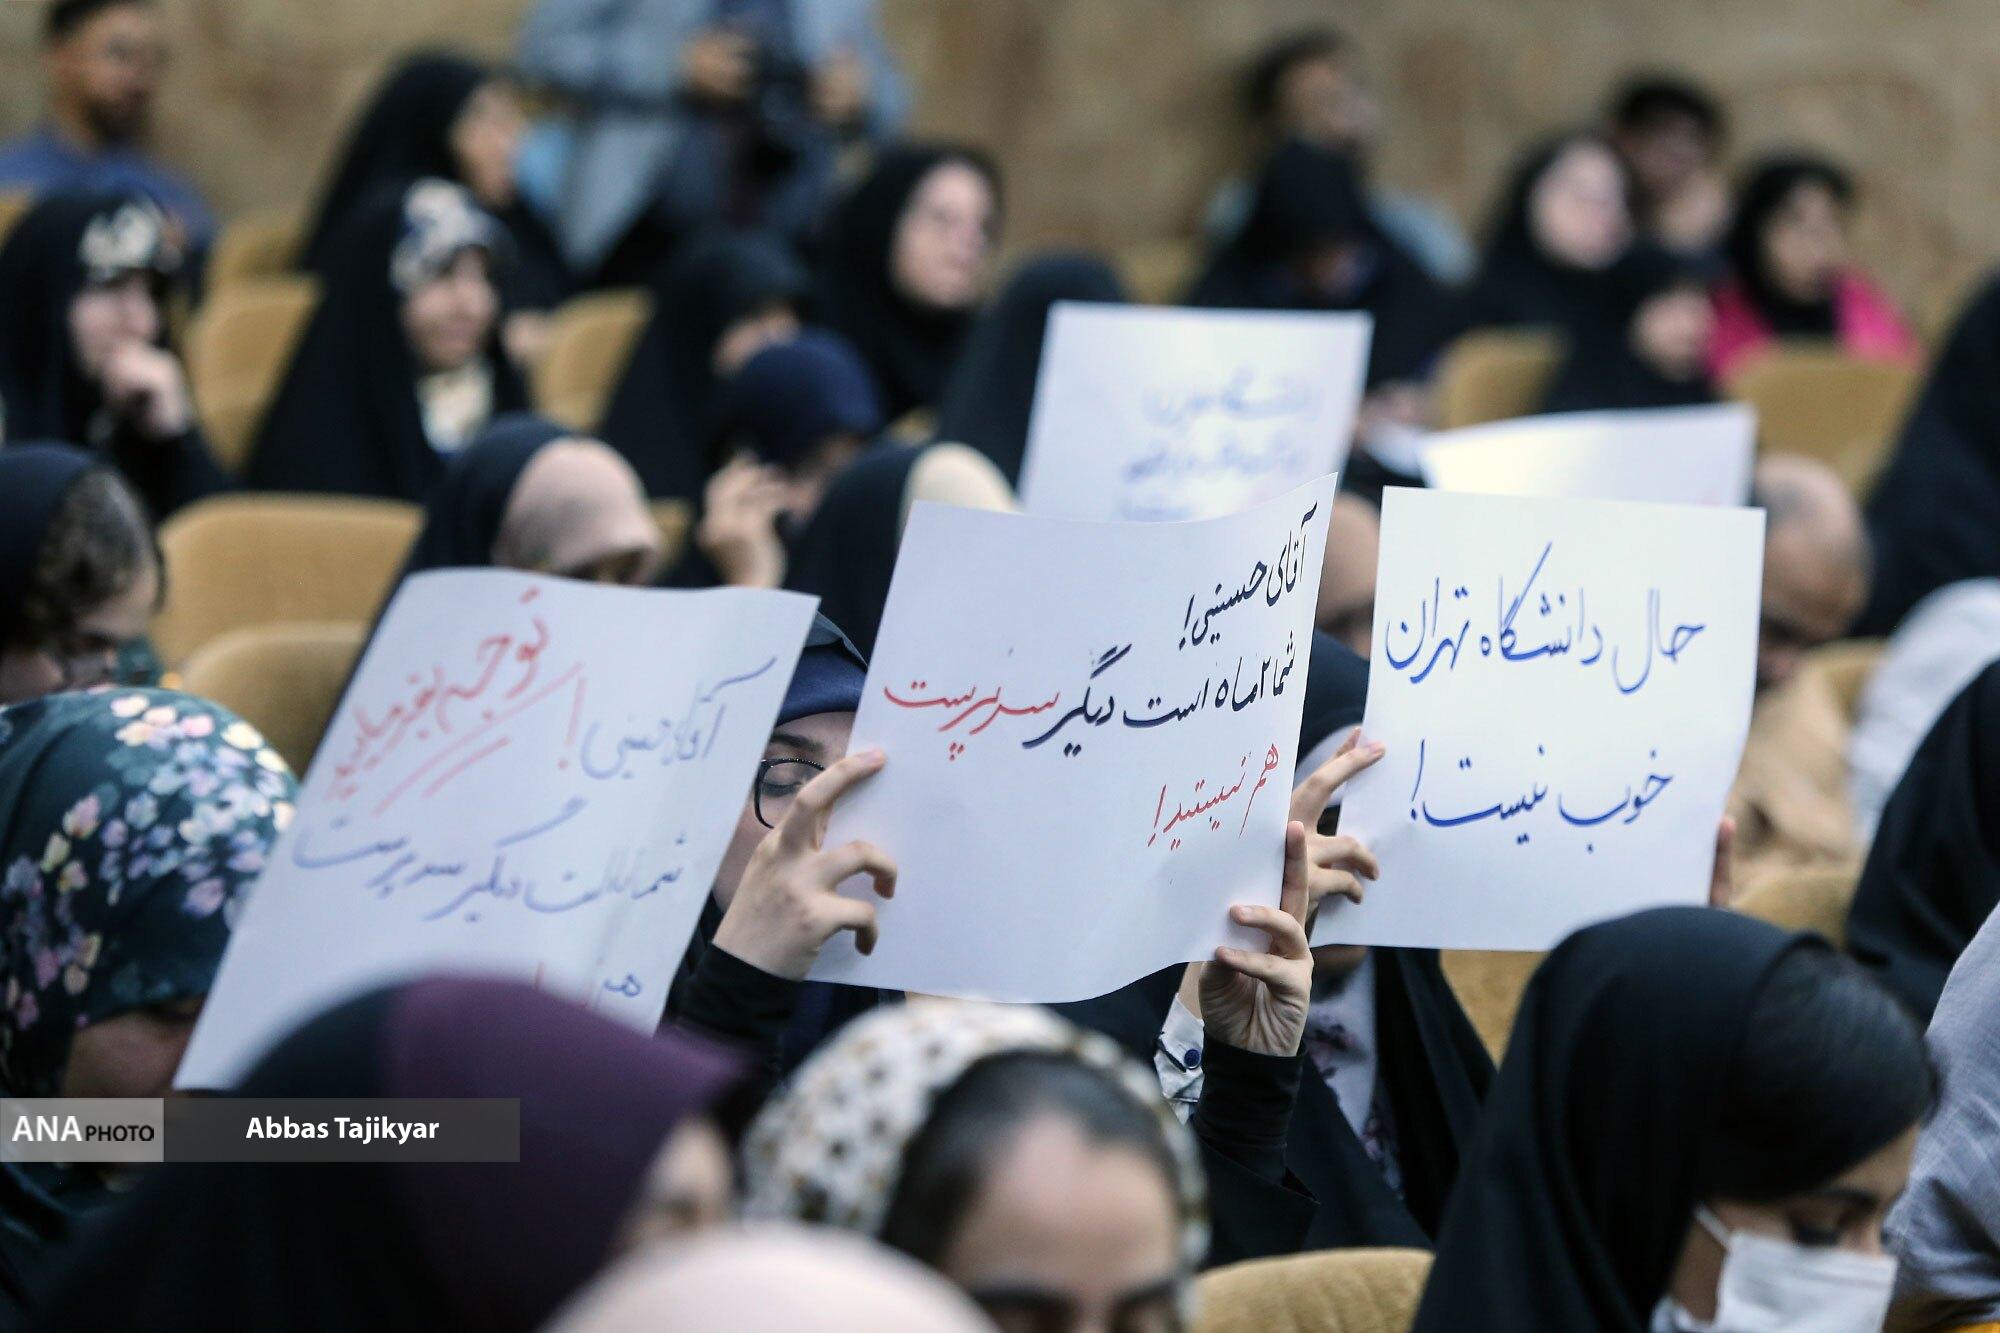 آقای حسینی!
شما ۲ ماه است دیگر سرپرست
هم نیستید!
حال دانشگاه تهران
خوب نیست!
توجه بفرمایید
آقای حسینی!
شما ۲ ماه است دیگر سرپرست
هم
ANA PHOTO
Abbas Tajikyar